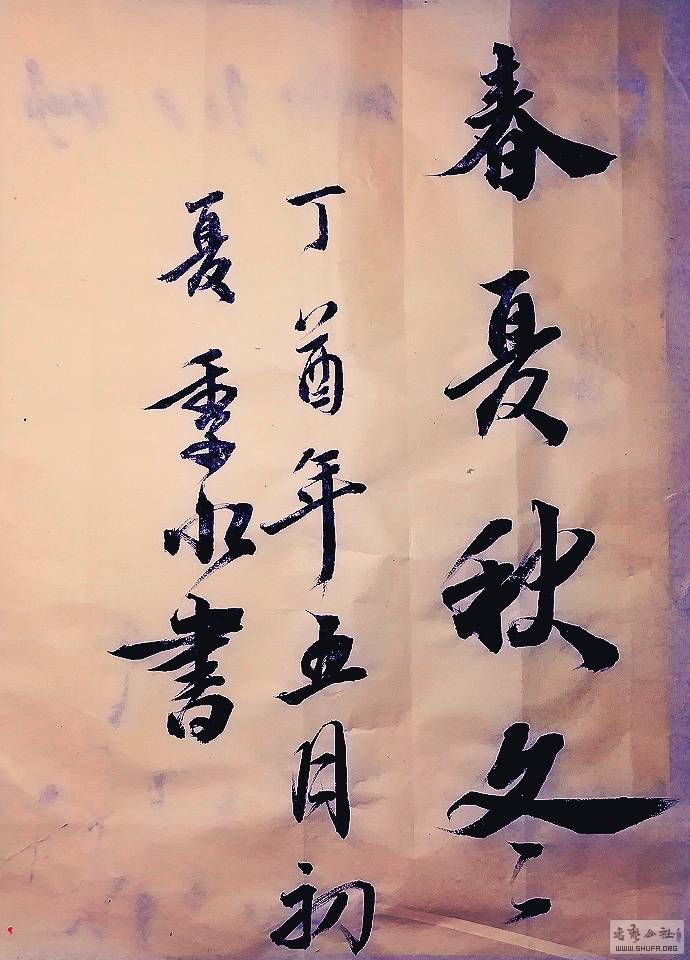 春夏秋冬
丁酉年五月初
夏季水書
书艺公社
WWW.SHUFA.ORG